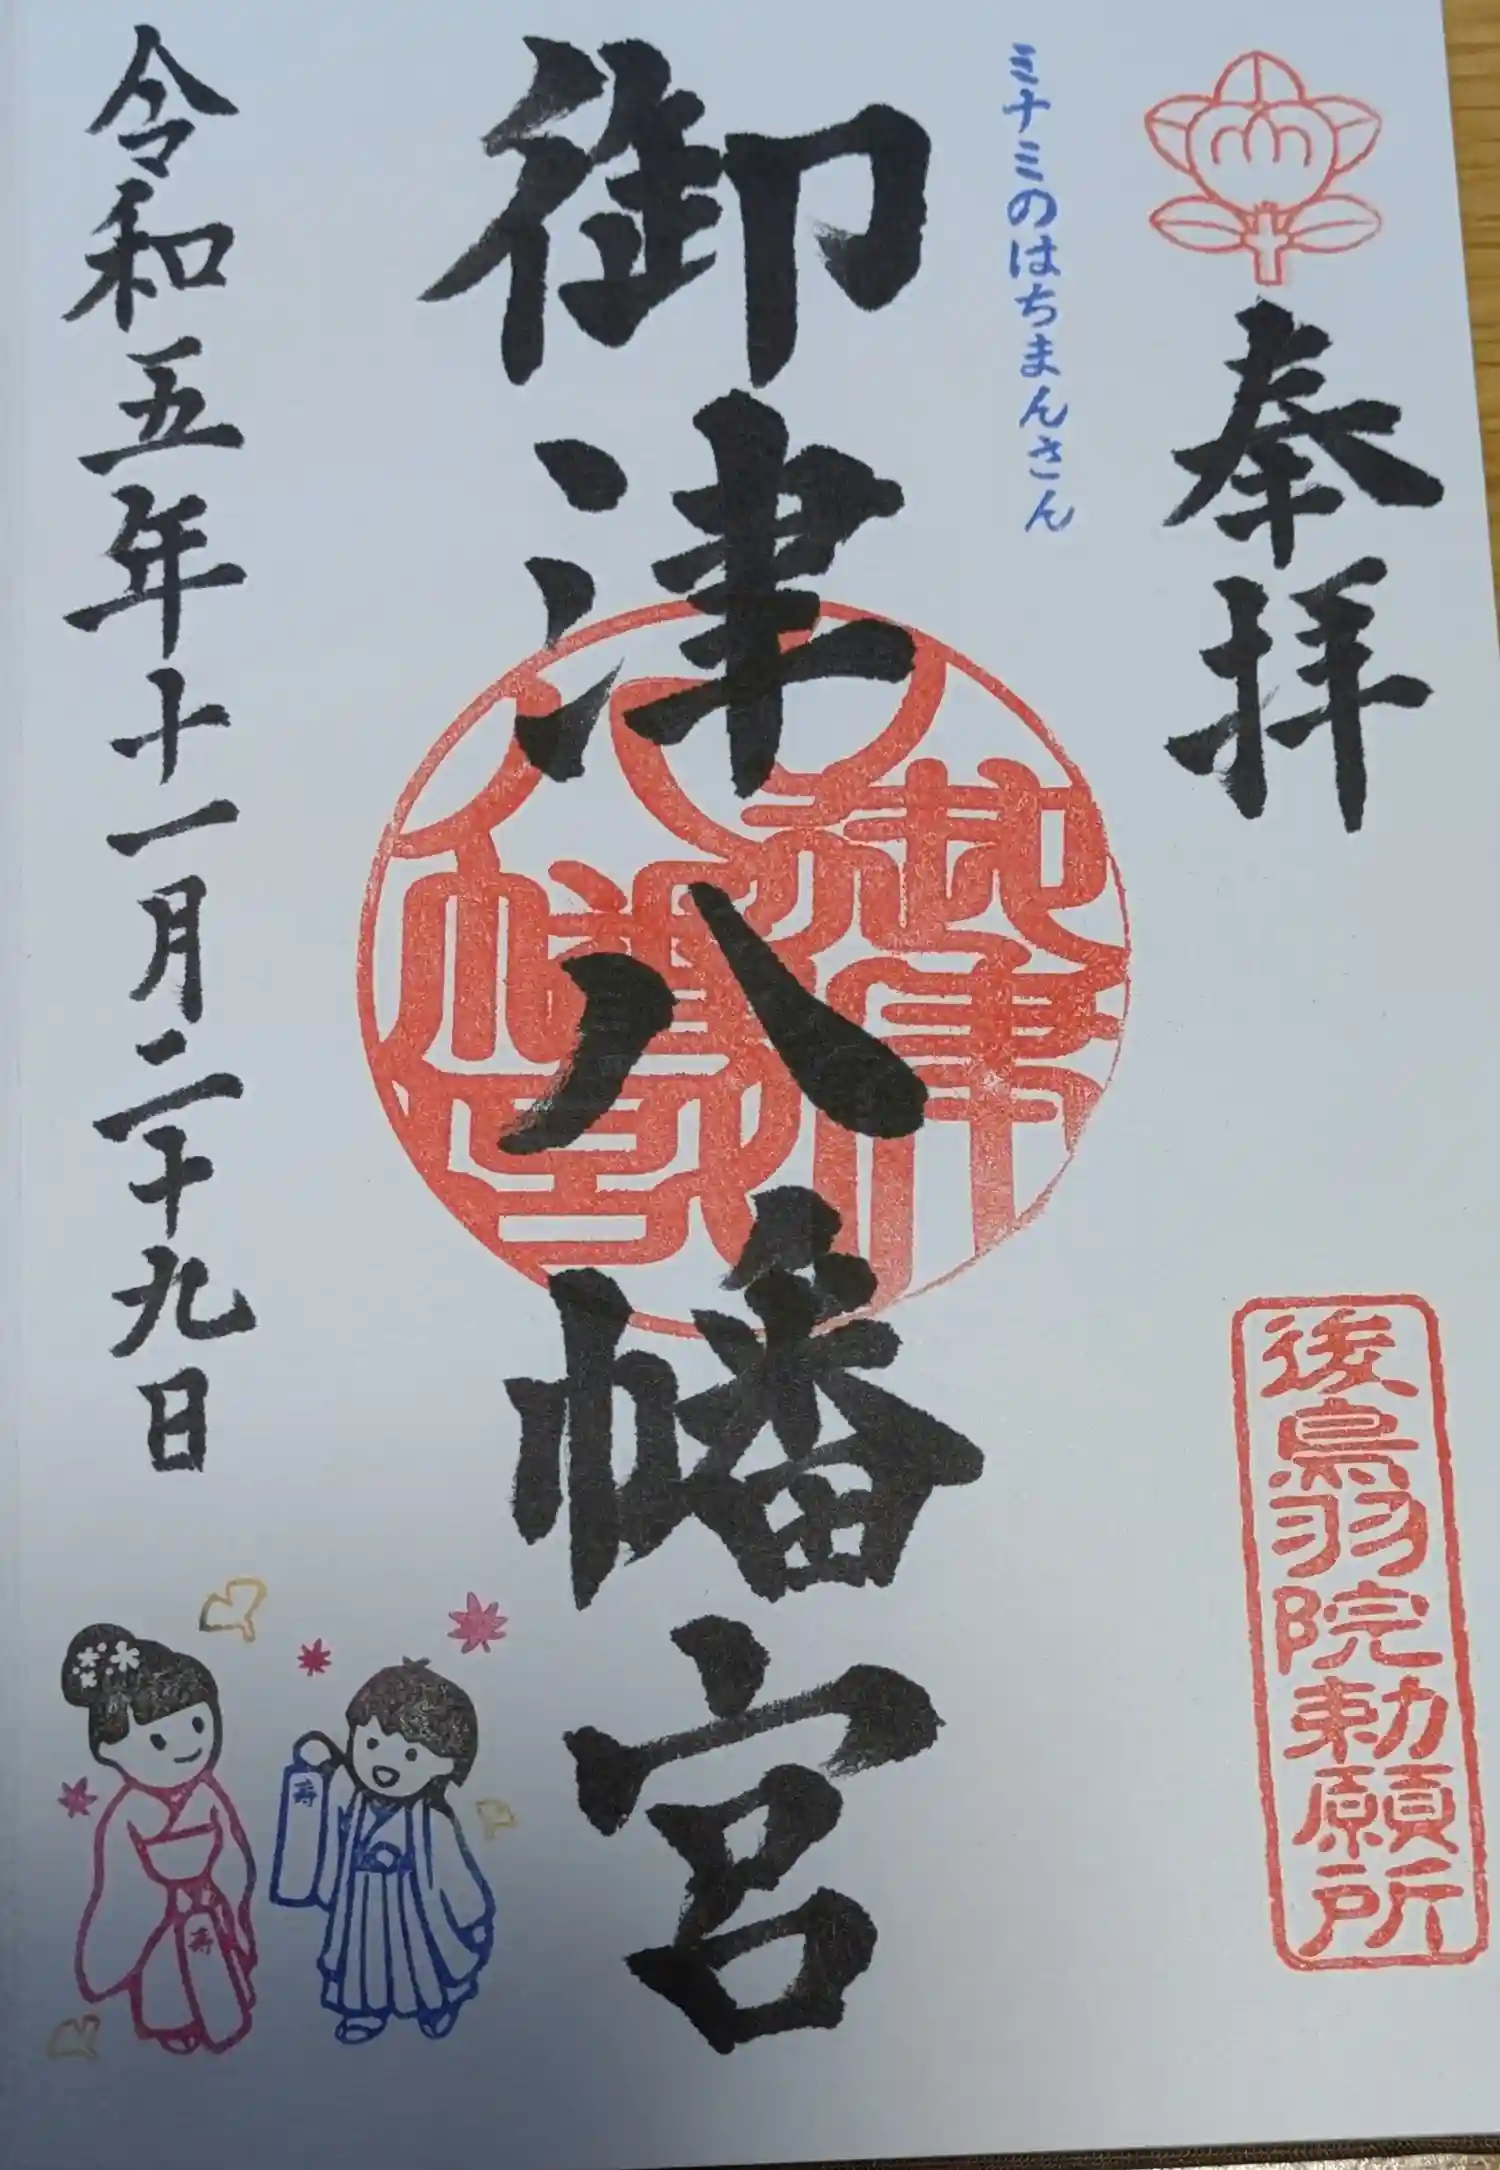 奉拝
後鳥羽院勅願所
ミナミのはちまんさん
御津八幡宮
御津八幡宮
令和五年十一月二十九日
寿
寿